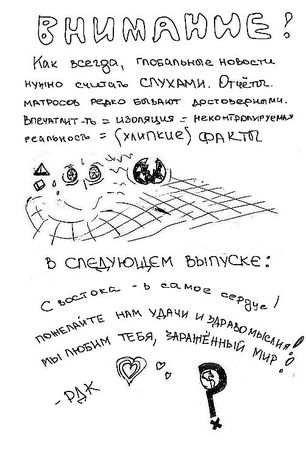 ВНИМАНИЕ!
Как всегда, глобальные новости
нужно считать СЛУХАМИ. Отчёты
матросов редко бывают достоверными.
Впечатлит-ть = изоляция = неконтролируемая
реальность = (хлипкие) ФАКТЫ
В СЛЕДУЮЩЕМ ВЫПУСКЕ:
С востока - в самое сердце!
ПОЖЕЛАЙТЕ НАМ УДАЧИ И ЗДРАВОМЫСЛИЯ!
МЫ ЛЮБИМ ТЕБЯ, ЗАРАЖЁННЫЙ МИР!
- РДК